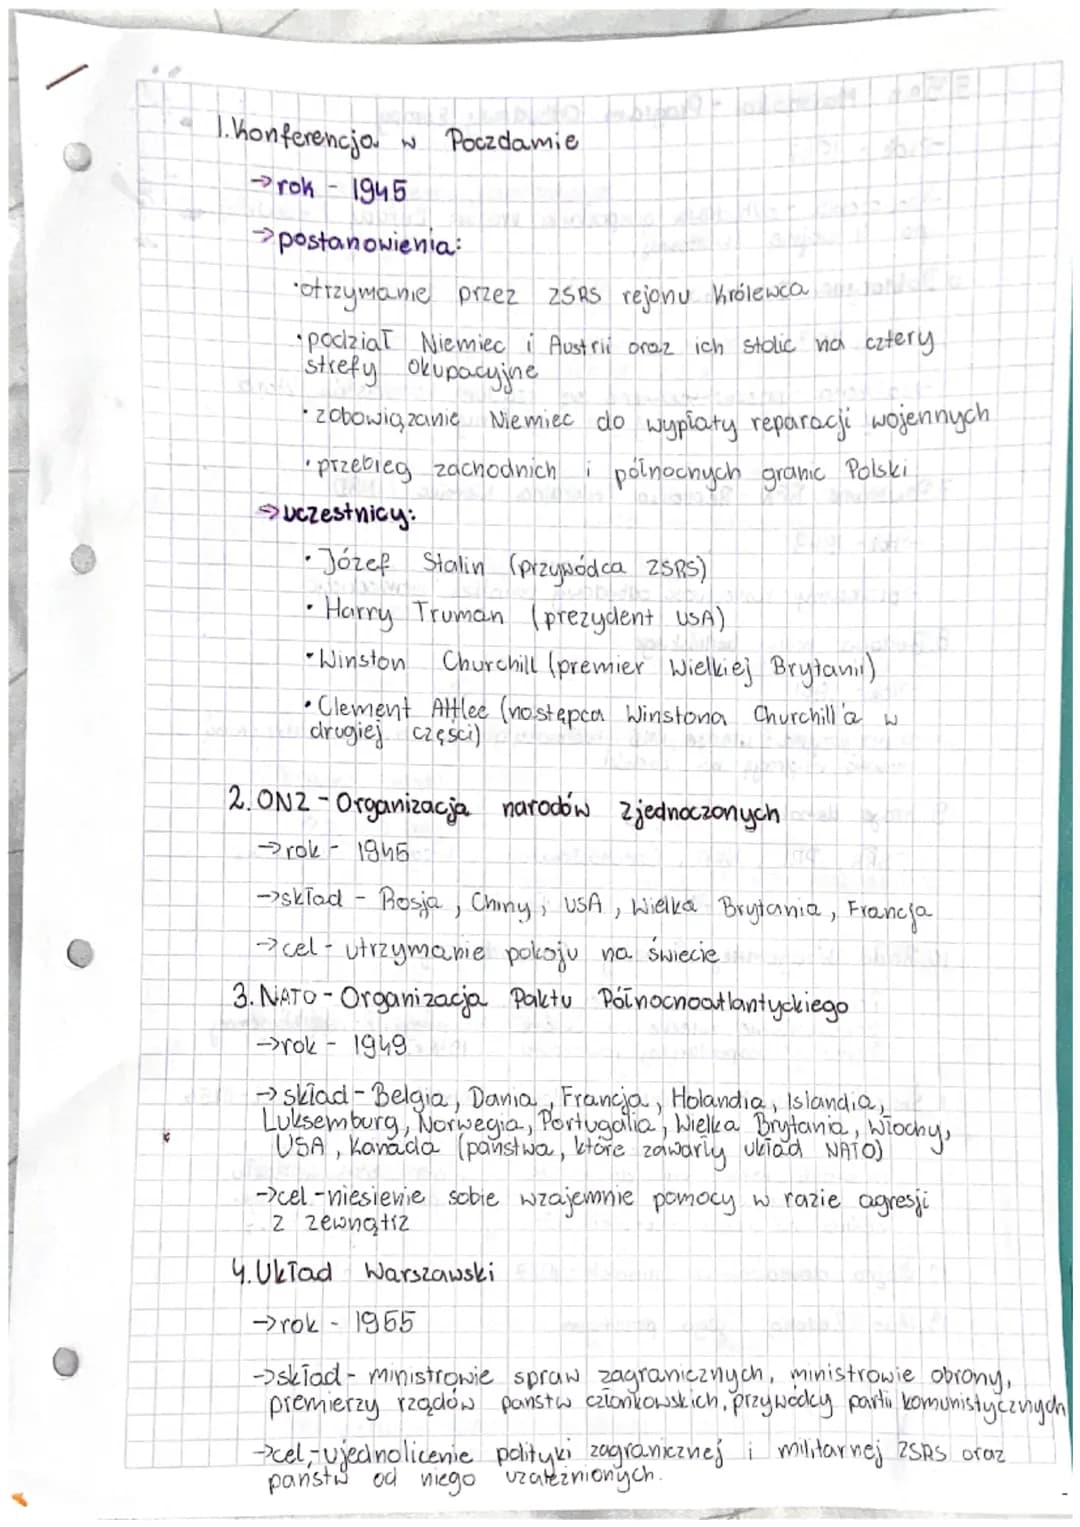 1. Konferencja w Poczdamie
→ rok - 1945
→ postanowienia:
• otrzymanie przez ZSRS rejonu Królewca
• podział Niemiec i Austrii oraz ich stolic na cztery
strefy okupacyjne
• zobowiązanie Niemiec do wypłaty reparacji wojennych
• przebieg zachodnich i północnych granic Polski
→ uczestnicy:
• Józef Stalin (przywódca ZSRS)
• Harry Truman (prezydent USA)
• Winston Churchill (premier Wielkiej Brytanii)
• Clement Attlee (następca Winstona Churchill'a w
drugiej części)
2. ONZ - Organizacja narodów Zjednoczonych
→ rok - 1945
→ skład - Rosja, Chiny, USA, Wielka Brytania, Francja
→ cel - utrzymanie pokoju na świecie
3. NATO - Organizacja Paktu Północnoatlantyckiego
→ rok - 1949
→ skład - Belgia, Dania, Francja, Holandia, Islandia,
Luksemburg, Norwegia, Portugalia, Wielka Brytania, Włochy,
USA, Kanada (państwa, które zawarły układ NATO)
→ cel - niesienie sobie wzajemnie pomocy w razie agresji
z zewnątrz
4. Układ Warszawski
→ rok - 1955
→ skład - ministrowie spraw zagranicznych, ministrowie obrony,
premierzy rządów państw członkowskich, przywódcy partii komunistycznych
→ cel - ujednolicenie polityki zagranicznej i militarnej ZSRS oraz
państw od niego uzależnionych.